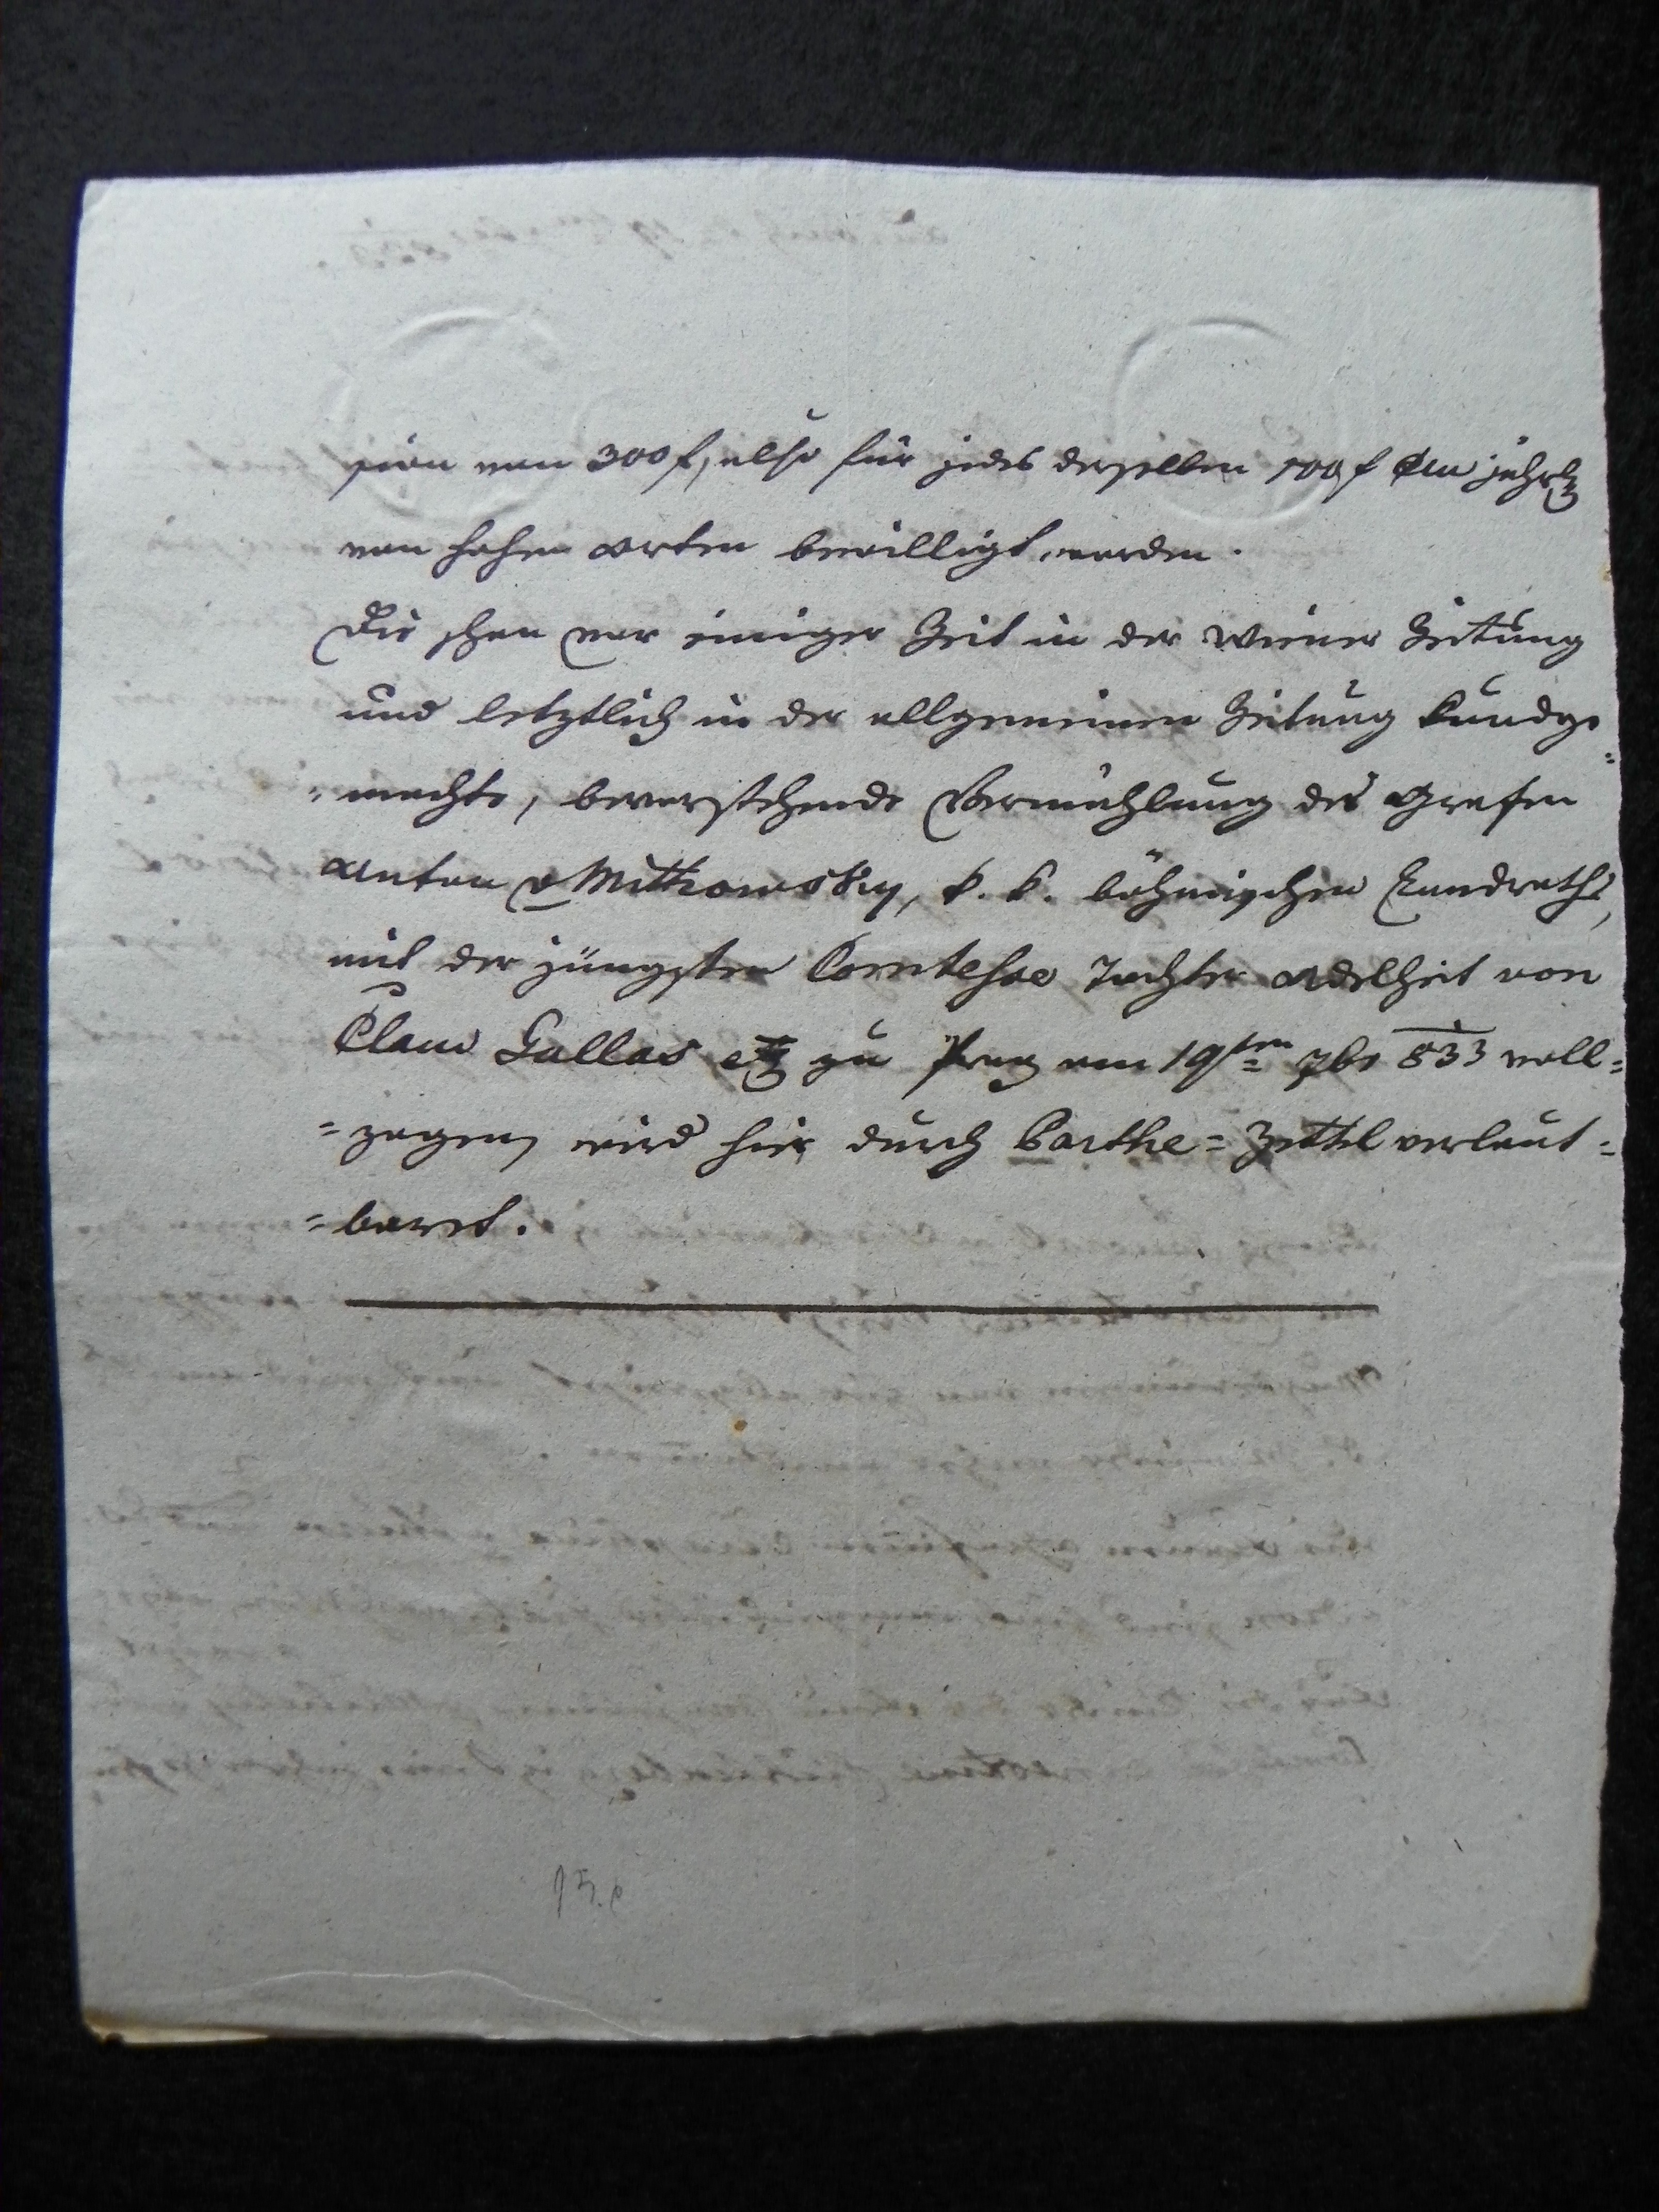 sion von 300 f, also für jedes derselben 100 f CM jährl
von hohen Orten bewilligt worden.
Die schon vor einiger Zeit in der Wiener Zeitung
und letztlich in der allgemeinen Zeitung kundge=
=machte, bevorstehende Vermählung des Grafen
Anton v Mittrowsky, k. k. böhmischen Landraths,
mit der jüngsten Comtesse Tochter Adelheit von
Clam Gallas etz zu Prag am 19ten 7br 833 voll=
=zogen, wird hier durch Parthe=Zettel verlaut=
=baret.